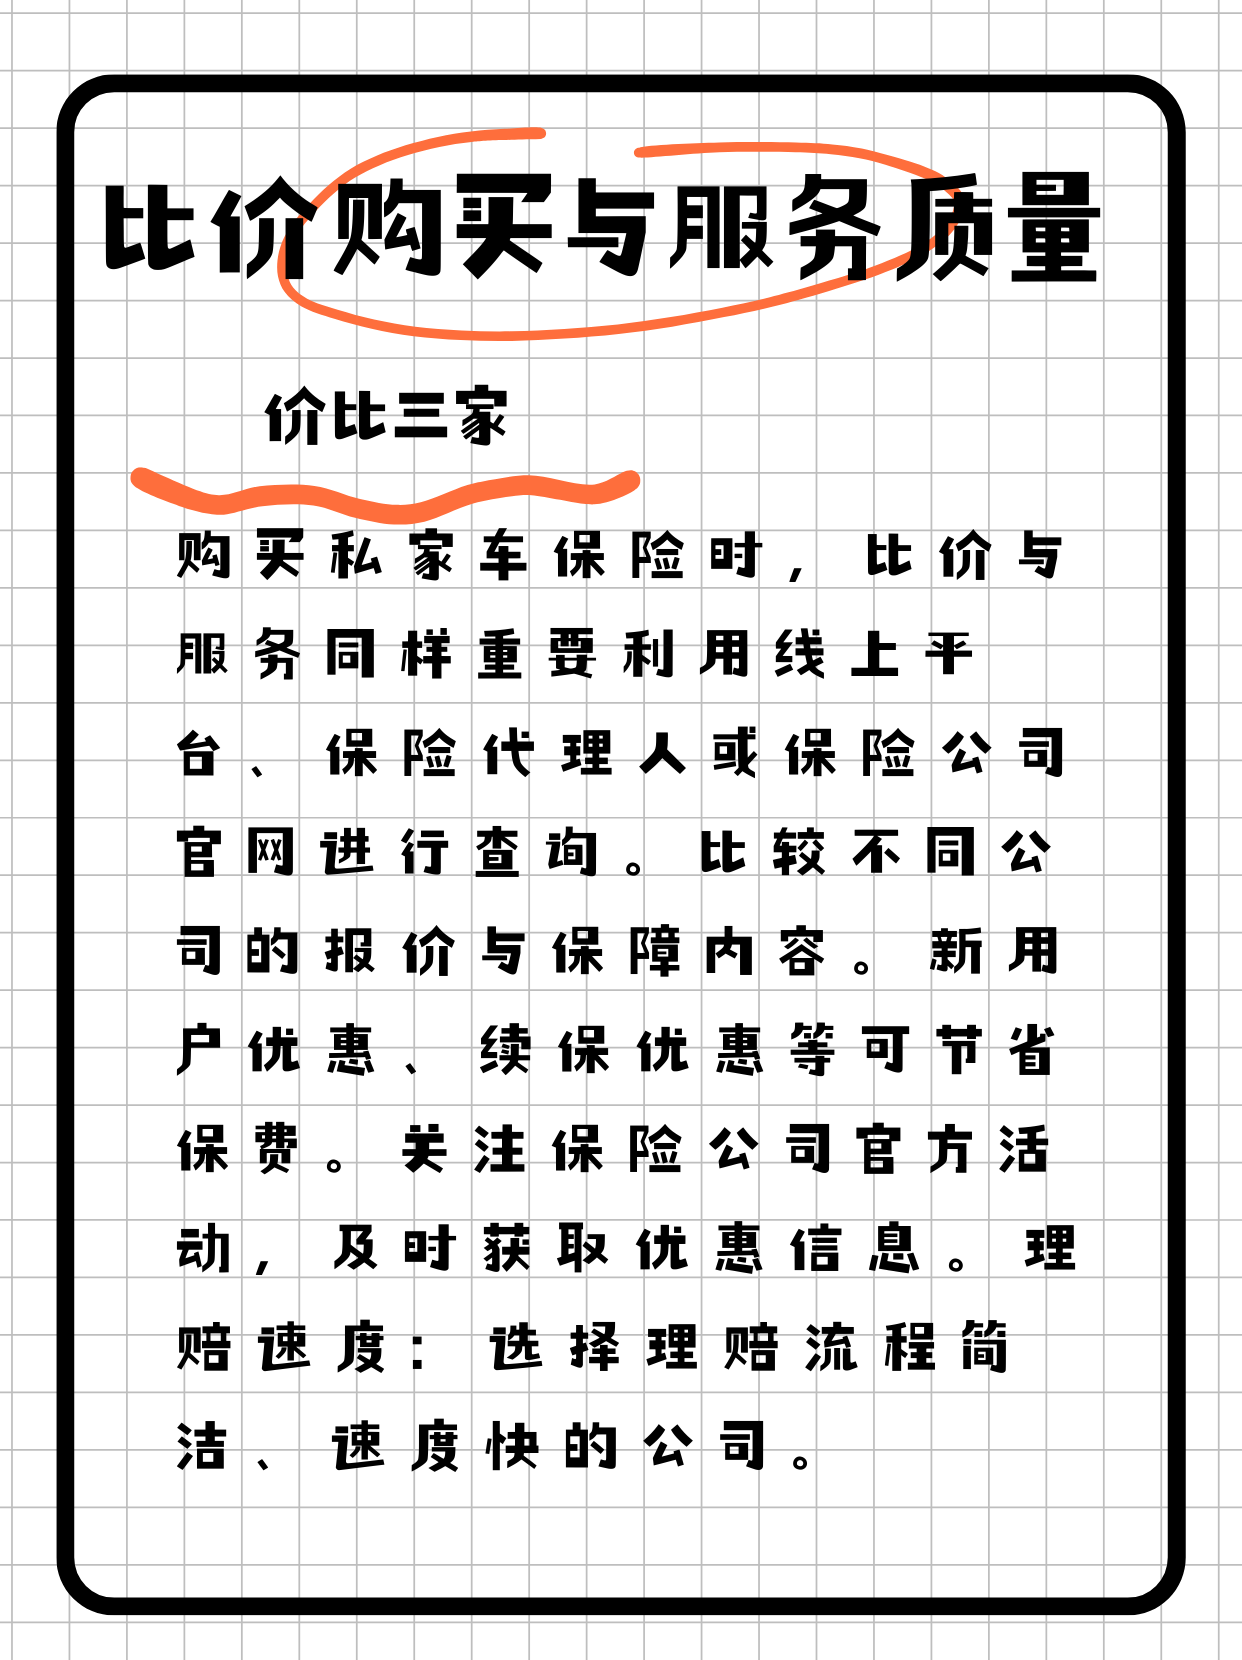 比价购买与服务质量
价比三家
购买私家车保险时，比价与
服务同样重要利用线上平
台、保险代理人或保险公司
官网进行查询。比较不同公
司的报价与保障内容。新用
户优惠、续保优惠等可节省
保费。关注保险公司官方活
动，及时获取优惠信息。理
赔速度：选择理赔流程简
洁、速度快的公司。